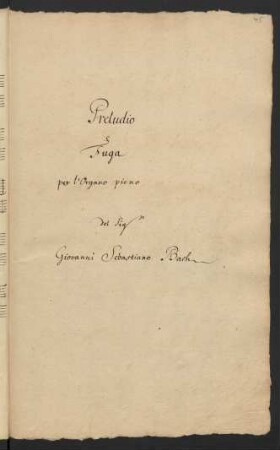 Preludio
è
Fuga
per l'Organo pieno
del Sigr
Giovanni Sebastiano Bach